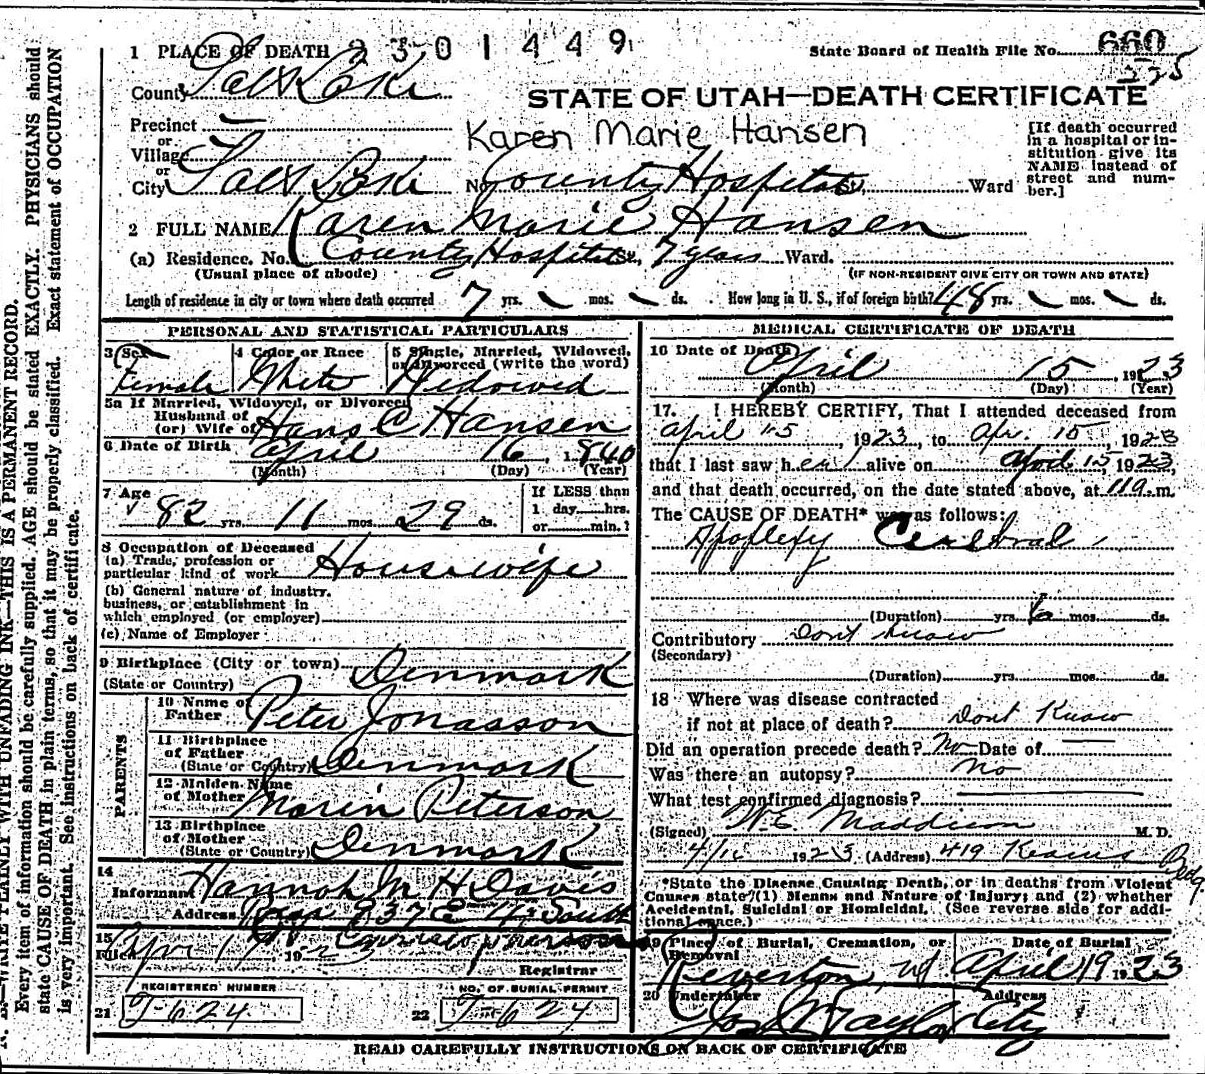 1 PLACE OF DEATH 2301449
State Board of Health File No. 660
225
County Salt Lake
STATE OF UTAH—DEATH CERTIFICATE
Precinct
or
Village
or
City Salt Lake No. County Hospital St., Ward
Karen Marie Hansen
[If death occurred
in a hospital or in-
stitution give its
NAME instead of
street and num-
ber.]
2 FULL NAME Karen Marie Hansen
(a) Residence. No. County Hospital St., 7 years Ward.
(Usual place of abode)
(IF NON-RESIDENT GIVE CITY OR TOWN AND STATE)
Length of residence in city or town where death occurred 7 yrs. mos. ds. How long in U. S., if of foreign birth? 48 yrs. mos. ds.
PERSONAL AND STATISTICAL PARTICULARS
3 Sex
Female
4 Color or Race
White
5 Single, Married, Widowed,
or Divorced (write the word)
Widowed
5a If Married, Widowed, or Divorced
Husband of
(or) Wife of Hans C Hansen
6 Date of Birth April 16, 1840
(Month) (Day) (Year)
7 Age
82 yrs. 11 mos. 29 ds.
If LESS than
1 day hrs.
or min.?
8 Occupation of Deceased
(a) Trade, profession or
particular kind of work Housewife
(b) General nature of industry,
business, or establishment in
which employed (or employer)
(c) Name of Employer
9 Birthplace (City or town)
(State or Country) Denmark
PARENTS
10 Name of
Father Peter Jonasson
11 Birthplace
of Father
(State or Country) Denmark
12 Maiden Name
of Mother Marin Peterson
13 Birthplace
of Mother
(State or Country) Denmark
14
Informant Hannah M H Davis
Address 837 E 4 South
15
Filed Apr 17 1923
Registrar
REGISTERED NUMBER
21 T-624
NO. OF BURIAL PERMIT
22 T-624
MEDICAL CERTIFICATE OF DEATH
16 Date of Death
April 15, 1923
(Month) (Day) (Year)
17. I HEREBY CERTIFY, That I attended deceased from
April 15, 1923, to Apr. 15, 1923
that I last saw her alive on April 15 1923,
and that death occurred, on the date stated above, at m.
The CAUSE OF DEATH* was as follows:
Apoplexy Cerebral
(Duration) yrs. 6 mos. ds.
Contributory Dont know
(Secondary)
(Duration) yrs. mos. ds.
18 Where was disease contracted
if not at place of death? Dont Know
Did an operation precede death? No Date of
Was there an autopsy? No
What test confirmed diagnosis?
(Signed) W.E. Maddison M. D.
4/16 1923 (Address) 419 Kearns Bldg.
*State the Disease Causing Death, or in deaths from Violent
Causes state (1) Means and Nature of Injury; and (2) whether
Accidental, Suicidal or Homicidal. (See reverse side for addi-
tional space.)
19 Place of Burial, Cremation, or
Removal
Riverton, Ut
Date of Burial
April 19 1923
20 Undertaker
Jos Wm Taylor
Address
City
READ CAREFULLY INSTRUCTIONS ON BACK OF CERTIFICATE
N. B.—WRITE PLAINLY WITH UNFADING INK—THIS IS A PERMANENT RECORD.
Every item of information should be carefully supplied. AGE should be stated EXACTLY. PHYSICIANS should
state CAUSE OF DEATH in plain terms, so that it may be properly classified. Exact statement of OCCUPATION
is very important. See instructions on back of certificate.